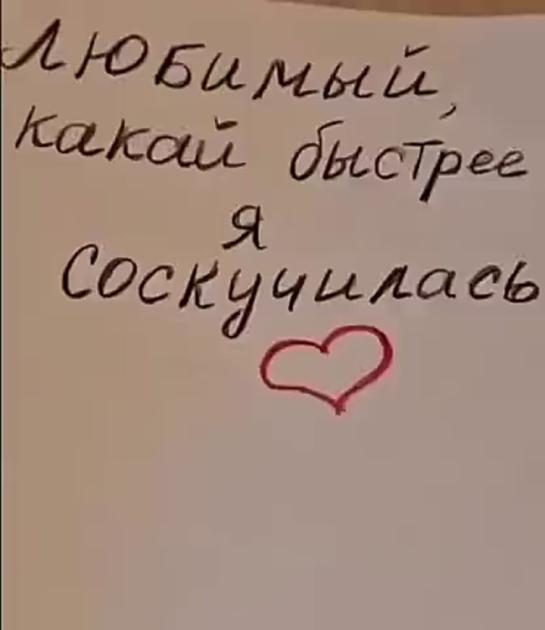 Любимый,
какай быстрее
я
соскучилась